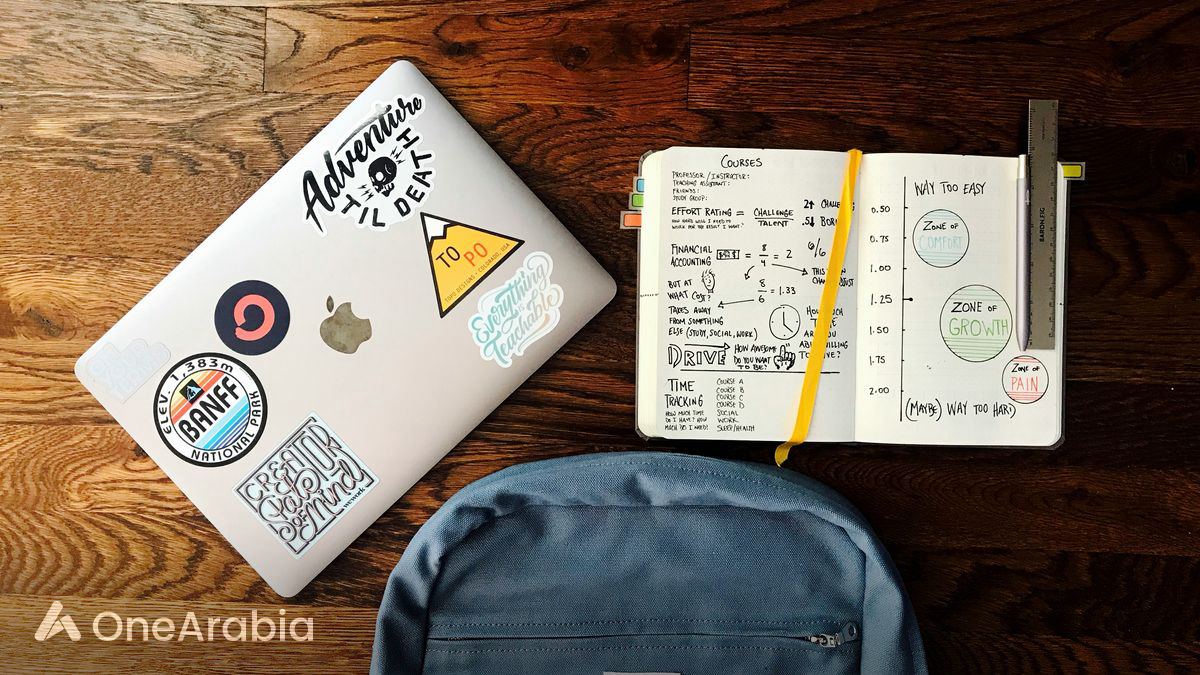 Adventure
'TIL DEATH
TO PO
TOPO DESIGNS • COLORADO, USA
Everything
Teachable
ELEV. 1,383m
BANFF
NATIONAL PARK
CREATOR
State
of Mind
wework
COURSES
PROFESSOR / INSTRUCTOR:
TEACHING ASSISTANT:
FRIENDS:
STUDY GROUP:
EFFORT RATING = CHALLENGE
TALENT
HOW HARD WILL I NEED TO
WORK FOR THE RESULT I WANT.
FINANCIAL
ACCOUNTING
= 8
4 = 2
6/6
BUT AT
WHAT COST?
8
6 = 1.33
THIS
TAKES AWAY
FROM SOMETHING
ELSE (STUDY, SOCIAL, WORK)
HOW MUCH
DRIVE
HOW AWESOME
DO YOU WANT
TO BE?
TIME
TRACKING
HOW MUCH TIME
DO I HAVE? HOW
MUCH DO I NEED?
COURSE A
COURSE B
COURSE C
COURSE D
SOCIAL
WORK
SLEEP/HEALTH
WAY TOO EASY
0.50
0.75
1.00
1.25
1.50
1.75
2.00
ZONE OF
COMFORT
ZONE OF
GROWTH
ZONE OF
PAIN
(MAYBE) WAY TOO HARD
BARON FIG
OneArabia